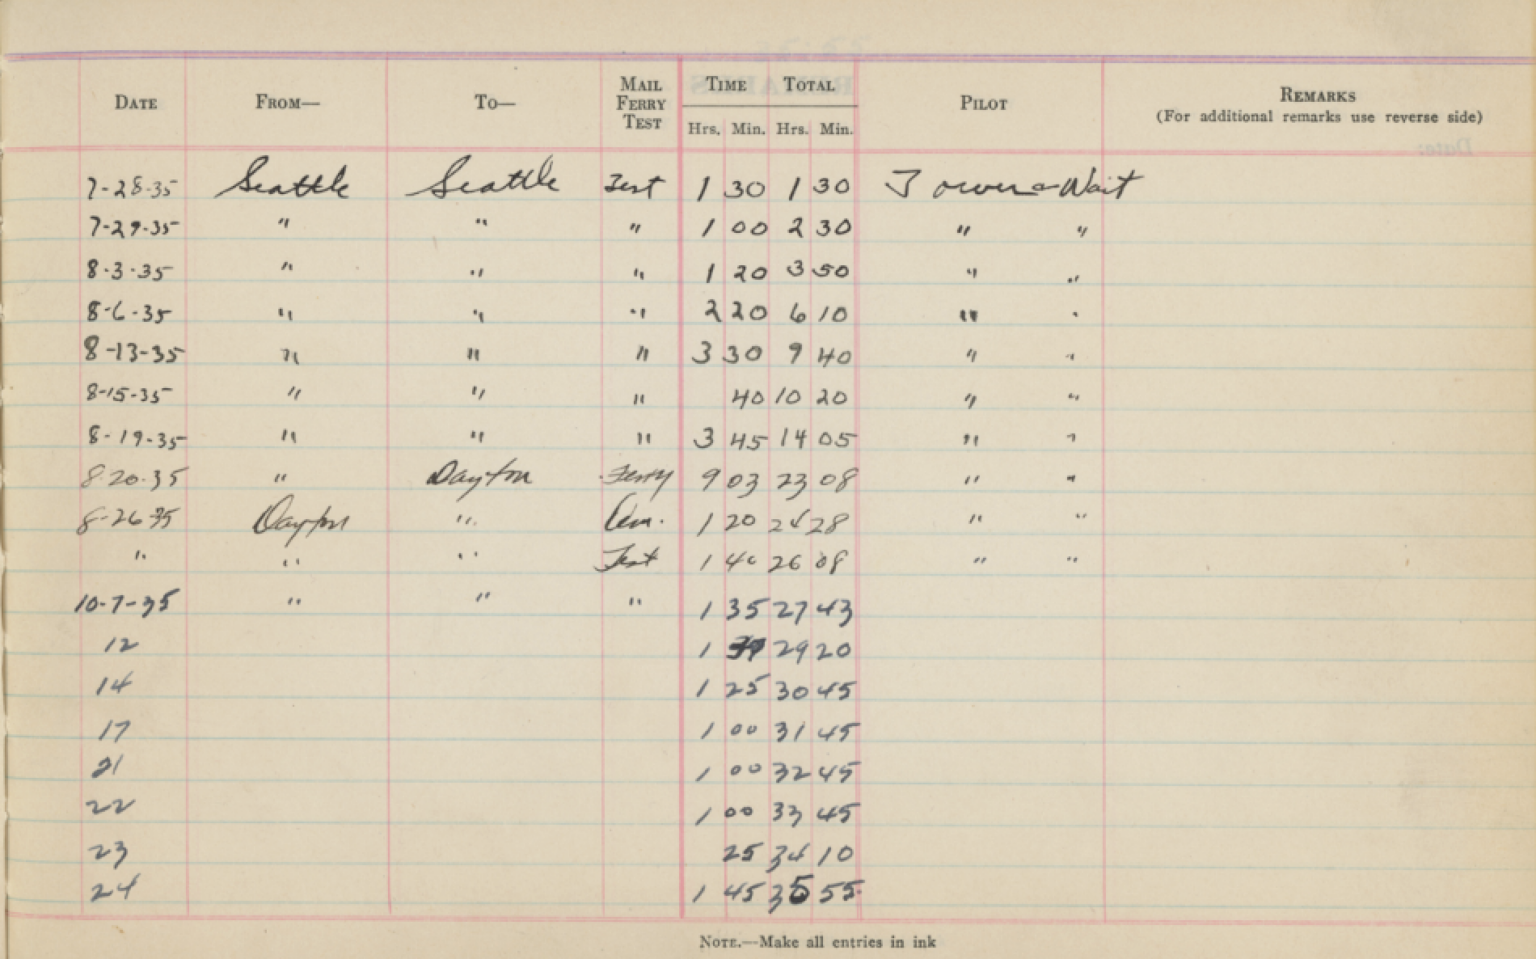 DATE FROM— TO— MAIL FERRY TEST TIME TOTAL PILOT REMARKS
Hrs. Min. Hrs. Min. (For additional remarks use reverse side)
7-28-35 Seattle Seattle Test 1 30 1 30 Tower-Wait
7-29-35 " " " 1 00 2 30 " "
8-3-35 " " " 1 20 3 50 " "
8-6-35 " " " 2 20 6 10 " "
8-13-35 " " " 3 30 9 40 " "
8-15-35 " " " 40 10 20 " "
8-19-35 " " " 3 45 14 05 " "
8-20-35 " Dayton Ferry 9 03 23 08 " "
8-26-35 Dayton " 1 20 24 28 " "
" " " Test 1 40 26 08 " "
10-7-35 " " " 1 35 27 43
12 1 29 20
14 1 25 30 45
17 1 00 31 45
21 1 00 32 45
22 1 00 33 45
23 25 34 10
24 1 45 35 55
NOTE.—Make all entries in ink